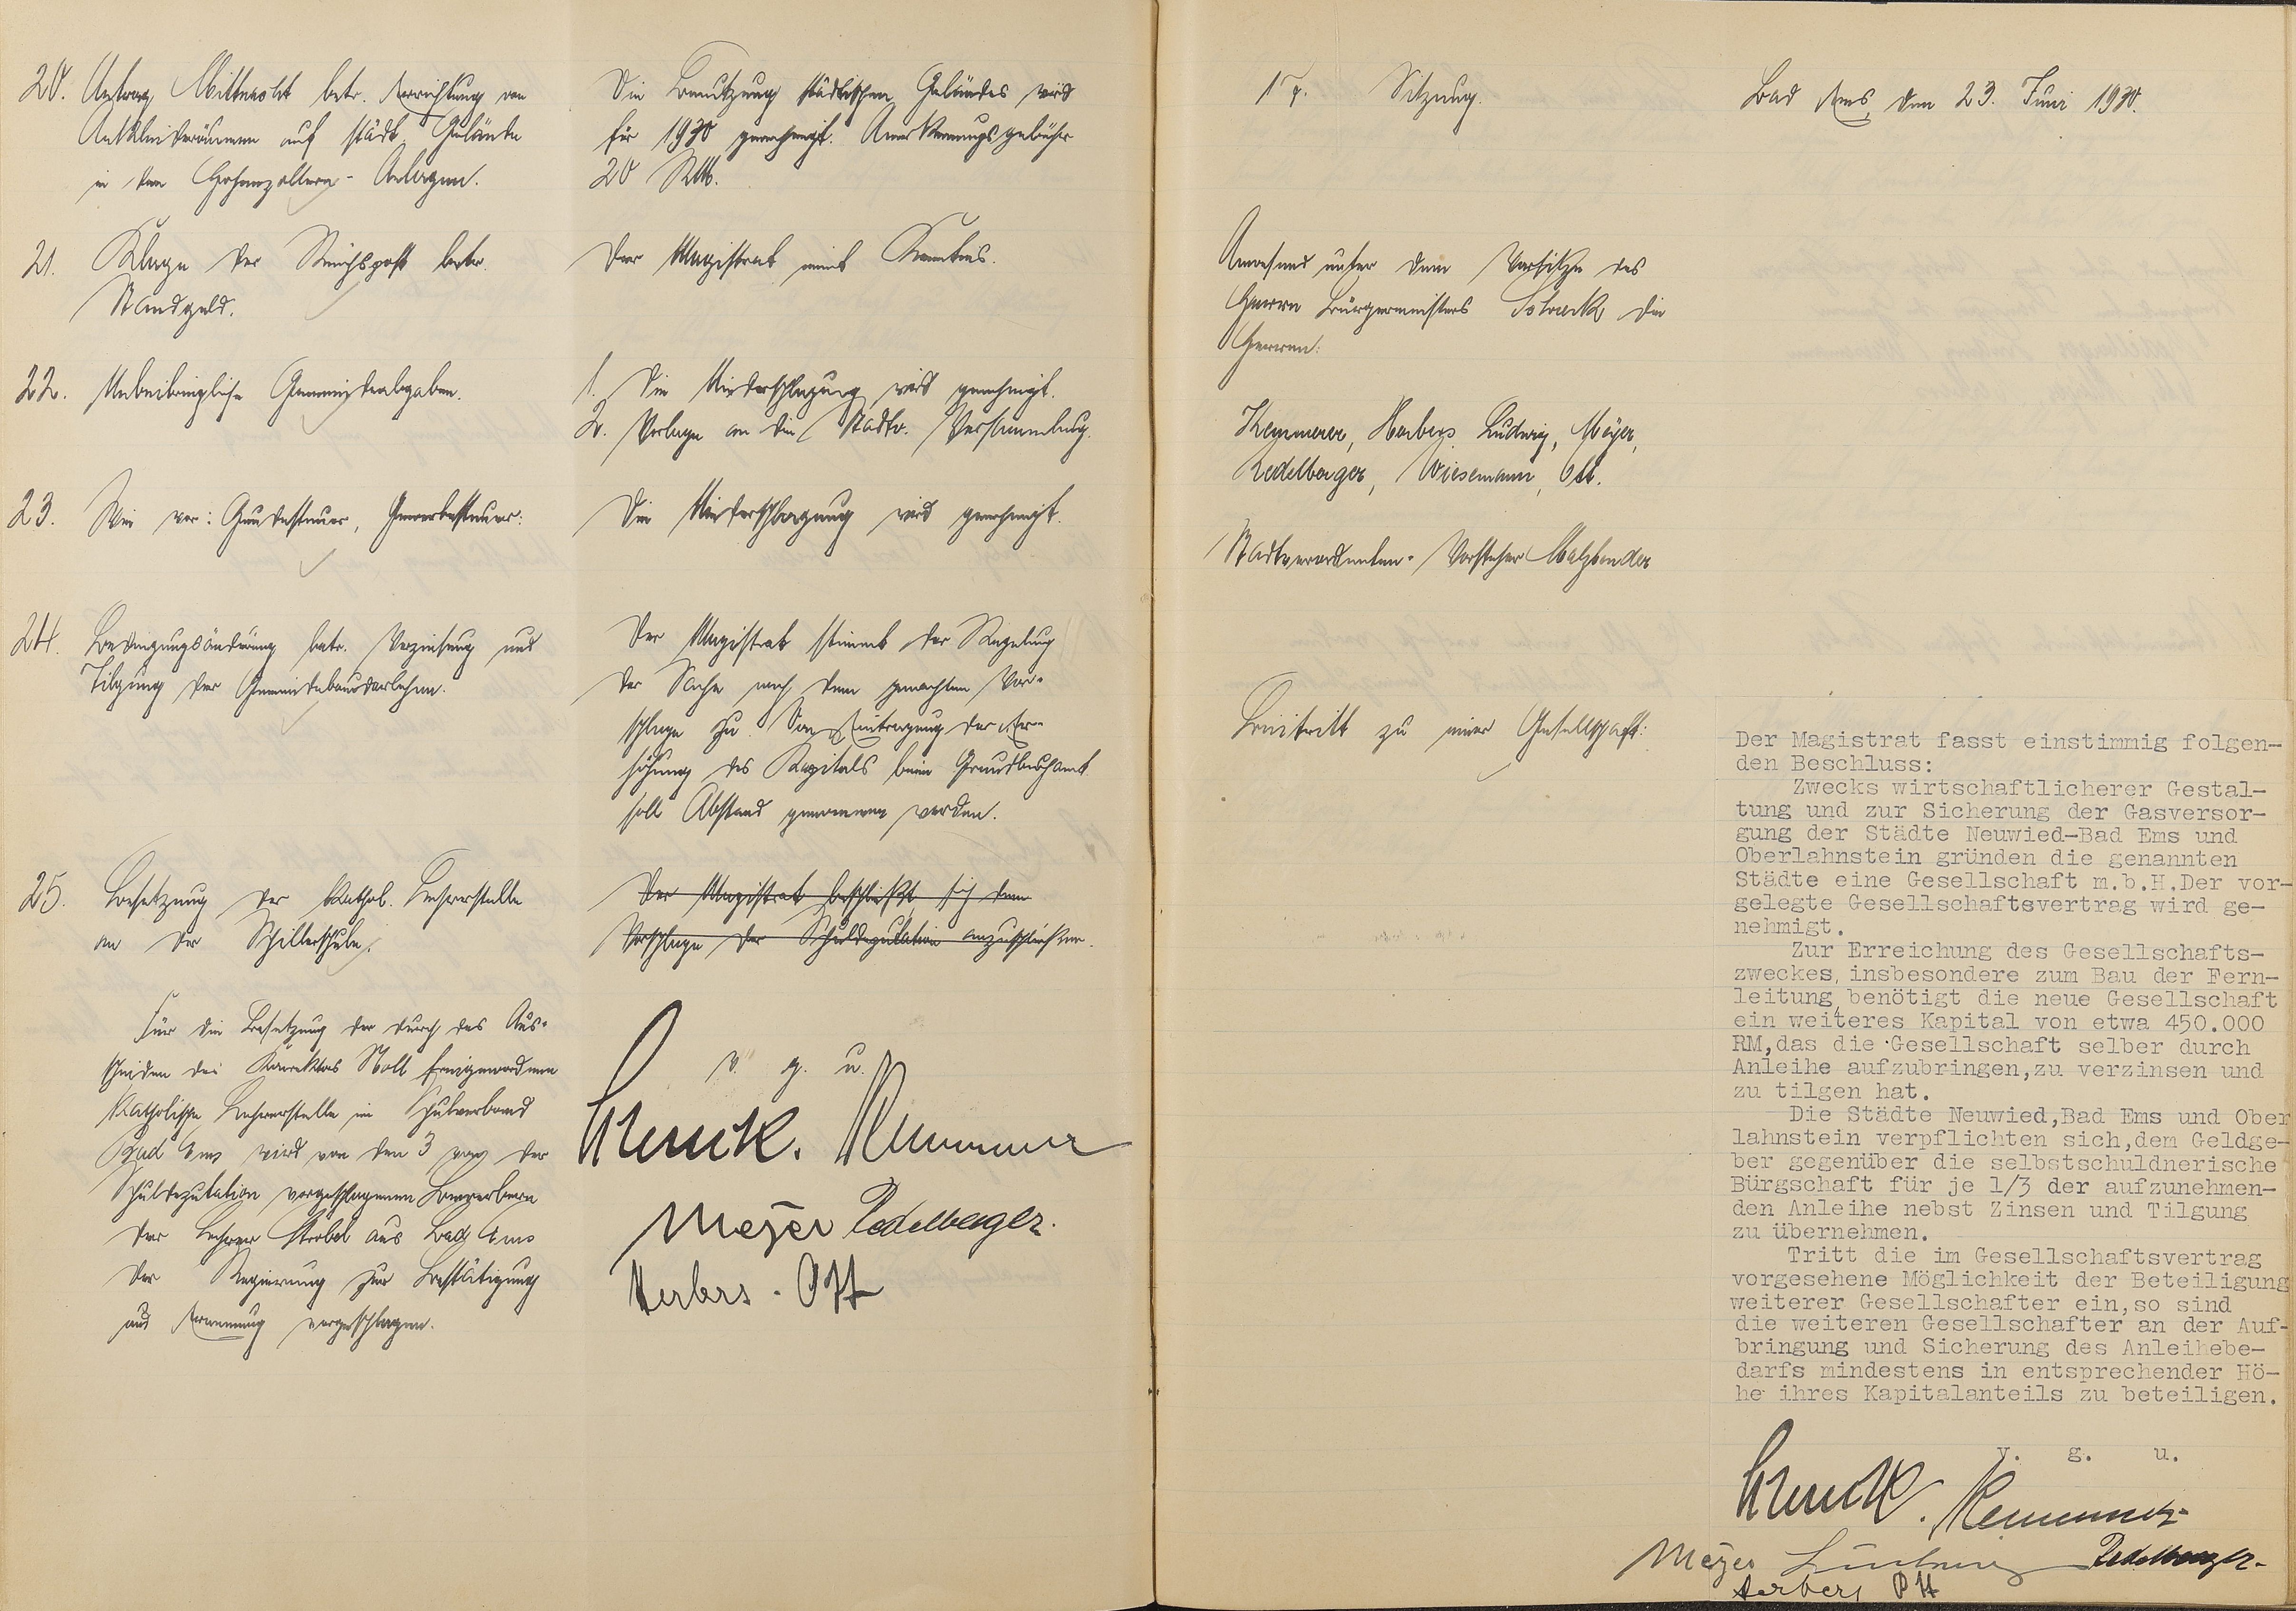 20. Antrag Mittnacht betr. Errichtung von
Ankleideräumen auf städt. Gelände
in den Hohenzollern-Anlagen.
Die Benutzung städtischen Geländes wird
für 1930 genehmigt. Anerkennungsgebühr
20 RM.
21. Klage der Reichspost betr.
Standgeld.
Der Magistrat nimmt Kenntnis.
22. Unbeibringliche Gemeindeabgaben.
1. Die Niederschlagung wird genehmigt.
2. Vorlage an die Stadtv. Versammlung.
23. Wie vor: Hundesteuer, Gewerbesteuer.
Die Niederschlagung wird genehmigt.
24. Bedingungsänderung betr. Verzinsung und
Tilgung der Gemeindebaudarlehen.
Der Magistrat stimmt der Regelung
der Sache nach dem gemachten Vor-
schlage zu. Von Eintragung der Er-
höhung des Kapitals beim Grundbuchamt
soll Abstand genommen werden.
25. Besetzung der kathol. Lehrerstelle
an der Schillerschule.
Der Magistrat beschließt, sich dem
Vorschlage der Schuldeputation anzuschließen.
Für die Besetzung der durch das Aus-
scheiden des Konrektors Noll freigewordenen
katholische Lehrerstelle im Schulverband
Bad Ems wird von den 3 von der
Schuldeputation vorgeschlagenen Bewerbern
der Lehrer Ströbel aus Bad Ems
der Regierung zur Bestätigung
und Ernennung vorgeschlagen.
v. g. u.
Schreck. Kemmerer
Meyer Redelberger.
Herbers. Ott
17. Sitzung.
Bad Ems, den 23. Juni 1930.
Anwesend unter dem Vorsitze des
Herrn Bürgermeisters Schreck die
Herren:
Kemmerer, Herbers, Ludwig, Meyer,
Redelberger, Wiesemann, Ott.
Stadtverordneten-Vorsteher Malzbender
Beitritt zu einer Gesellschaft:
Der Magistrat fasst einstimmig folgen-
den Beschluss:
Zwecks wirtschaftlicherer Gestal-
tung und zur Sicherung der Gasversor-
gung der Städte Neuwied-Bad Ems und
Oberlahnstein gründen die genannten
Städte eine Gesellschaft m.b.H.Der vor-
gelegte Gesellschaftsvertrag wird ge-
nehmigt.
Zur Erreichung des Gesellschafts-
zweckes, insbesondere zum Bau der Fern-
leitung, benötigt die neue Gesellschaft
ein weiteres Kapital von etwa 450.000
RM,das die Gesellschaft selber durch
Anleihe aufzubringen,zu verzinsen und
zu tilgen hat.
Die Städte Neuwied,Bad Ems und Ober
lahnstein verpflichten sich,dem Geldge-
ber gegenüber die selbstschuldnerische
Bürgschaft für je 1/3 der aufzunehmen-
den Anleihe nebst Zinsen und Tilgung
zu übernehmen.
Tritt die im Gesellschaftsvertrag
vorgesehene Möglichkeit der Beteiligung
weiterer Gesellschafter ein,so sind
die weiteren Gesellschafter an der Auf-
bringung und Sicherung des Anleihebe-
darfs mindestens in entsprechender Hö-
he ihres Kapitalanteils zu beteiligen.
v. g. u.
Schreck. Kemmerer
Meyer Ludwig Redelberger.
Herbers Ott